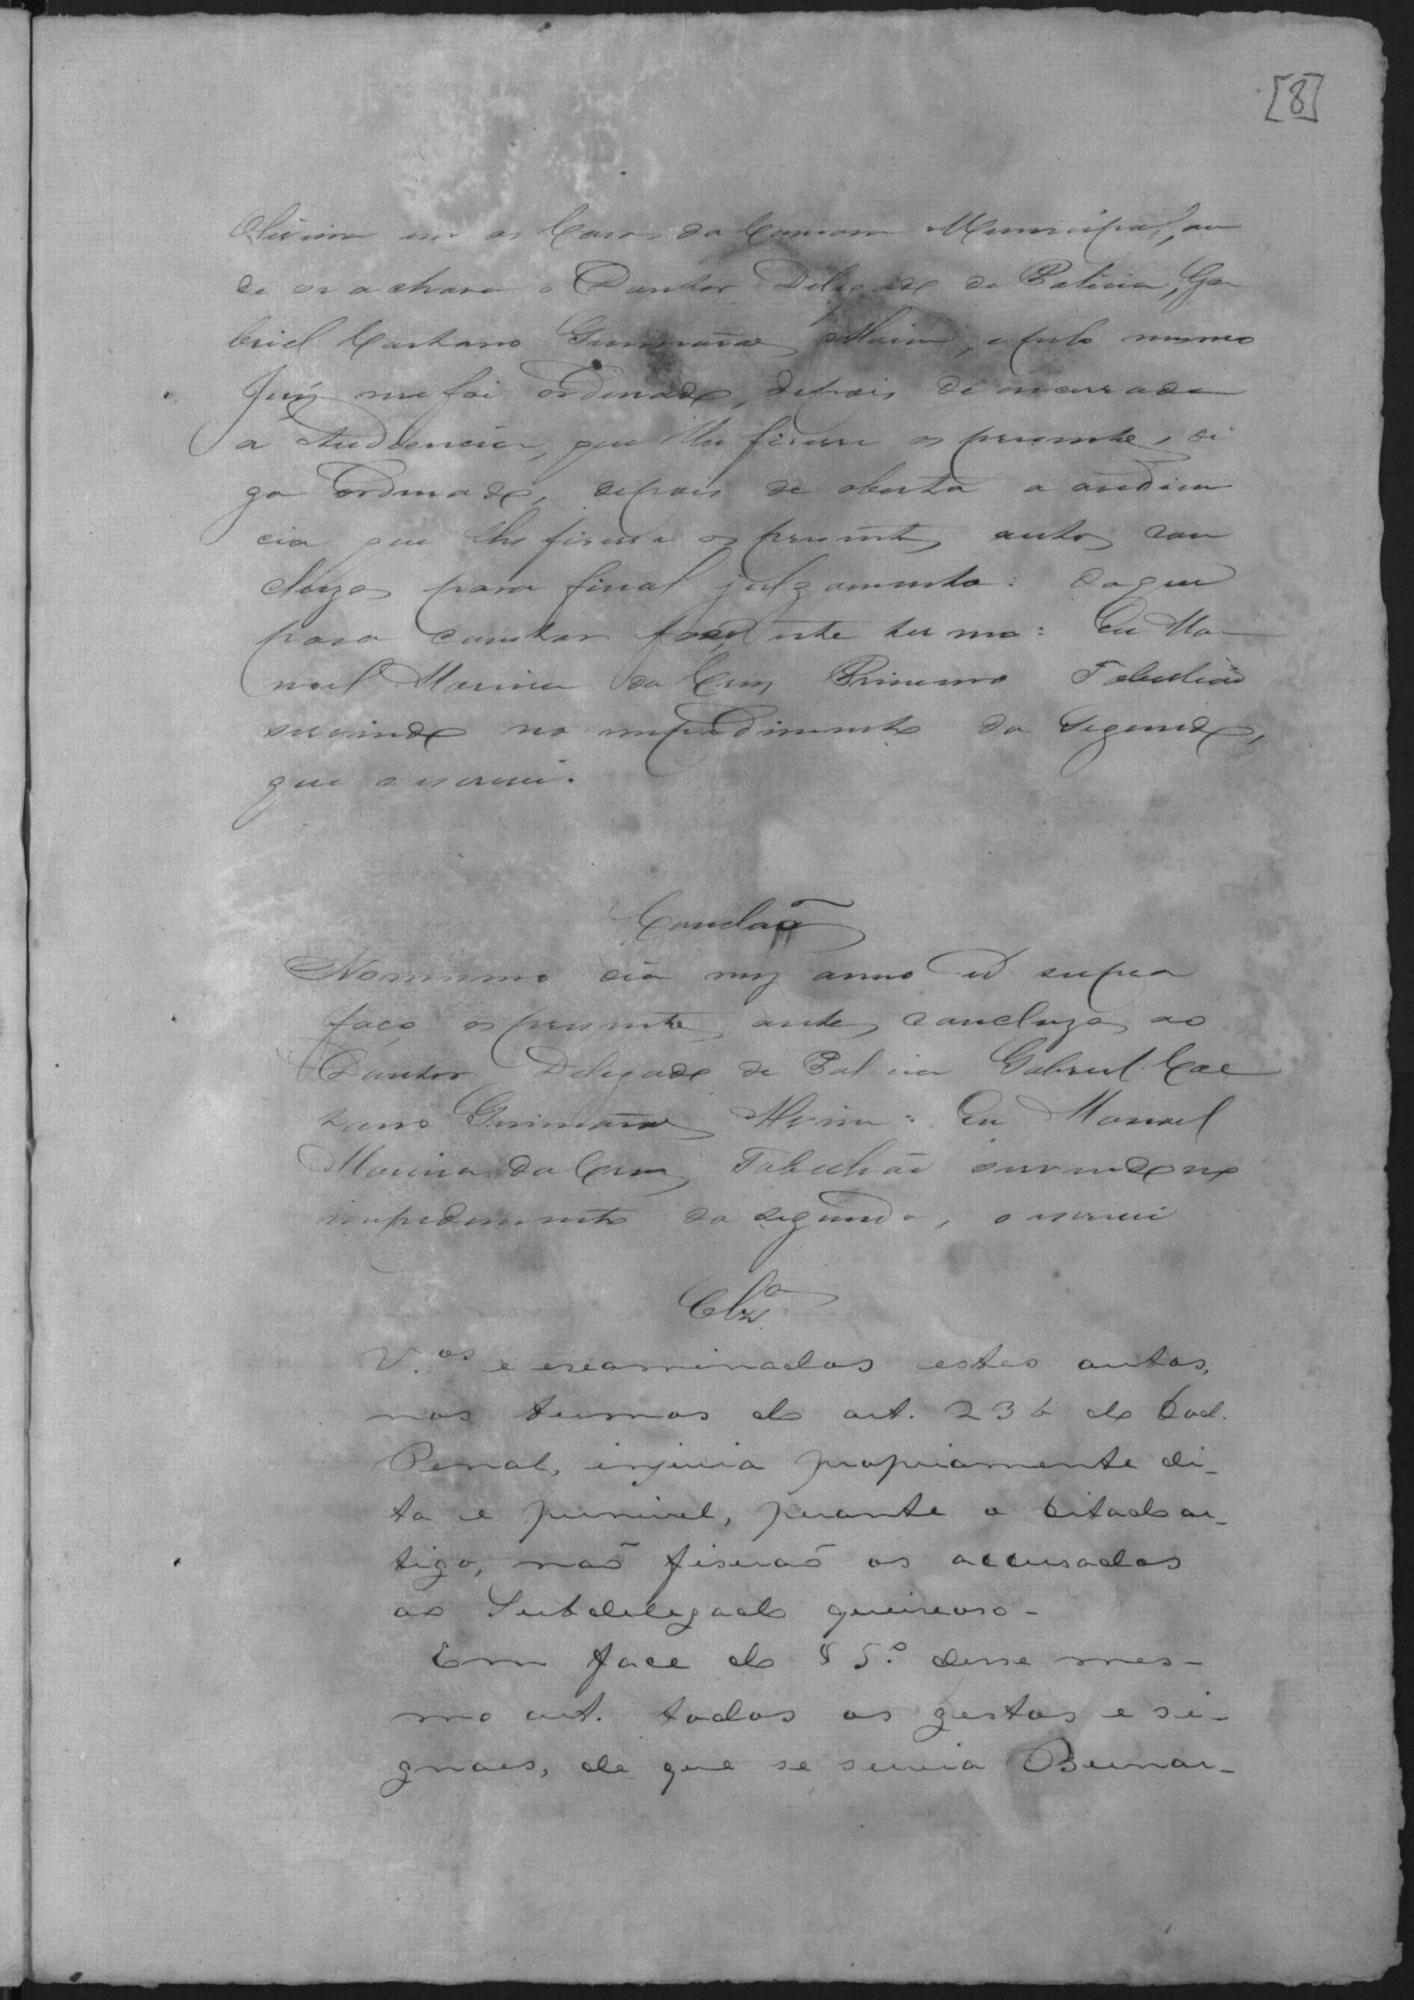 [8]
Oliveira em as Casas da Camara Municipal, on
de se achava o Doutor Delegado de Policia, Ga
briel Caetano Guimarães Alvim, e pelo mesmo
Juiz me foi ordenado, depois de encerrada
a Audiencia, que lhe fizesse os presentes, di
go ordenado, depois de aberta a audien
cia que lhe fizesse os presentes autos con
cluzos para final julgamento: do que
para constar faço este termo: Eu Ma
noel Pereira da Cruz Primeiro Tabelião
servindo no impedimento do Segundo,
que o escrevi.
Conclsão
No mesmo dia mez anno ut supra
faço os presentes autos concluzos ao
Doutor Delegado de Policia Gabriel Cae
tano Guimarães Alvim: Eu Manoel
da Cruz Tabelião servindo no
impedimento do segundo, o escrevi
Clzª
V.os e examinados estes autos,
nos termos do art. 236 do Cod.
Penal, injuria propriamente di-
ta e punivel, perante o citado ar-
tigo, não fiserão os accusados
ao Subdelegado queixoso-
Em face do § 5.º desse mes-
mo art. todos os gestos e si-
gnaes, de que se servia Bernar-